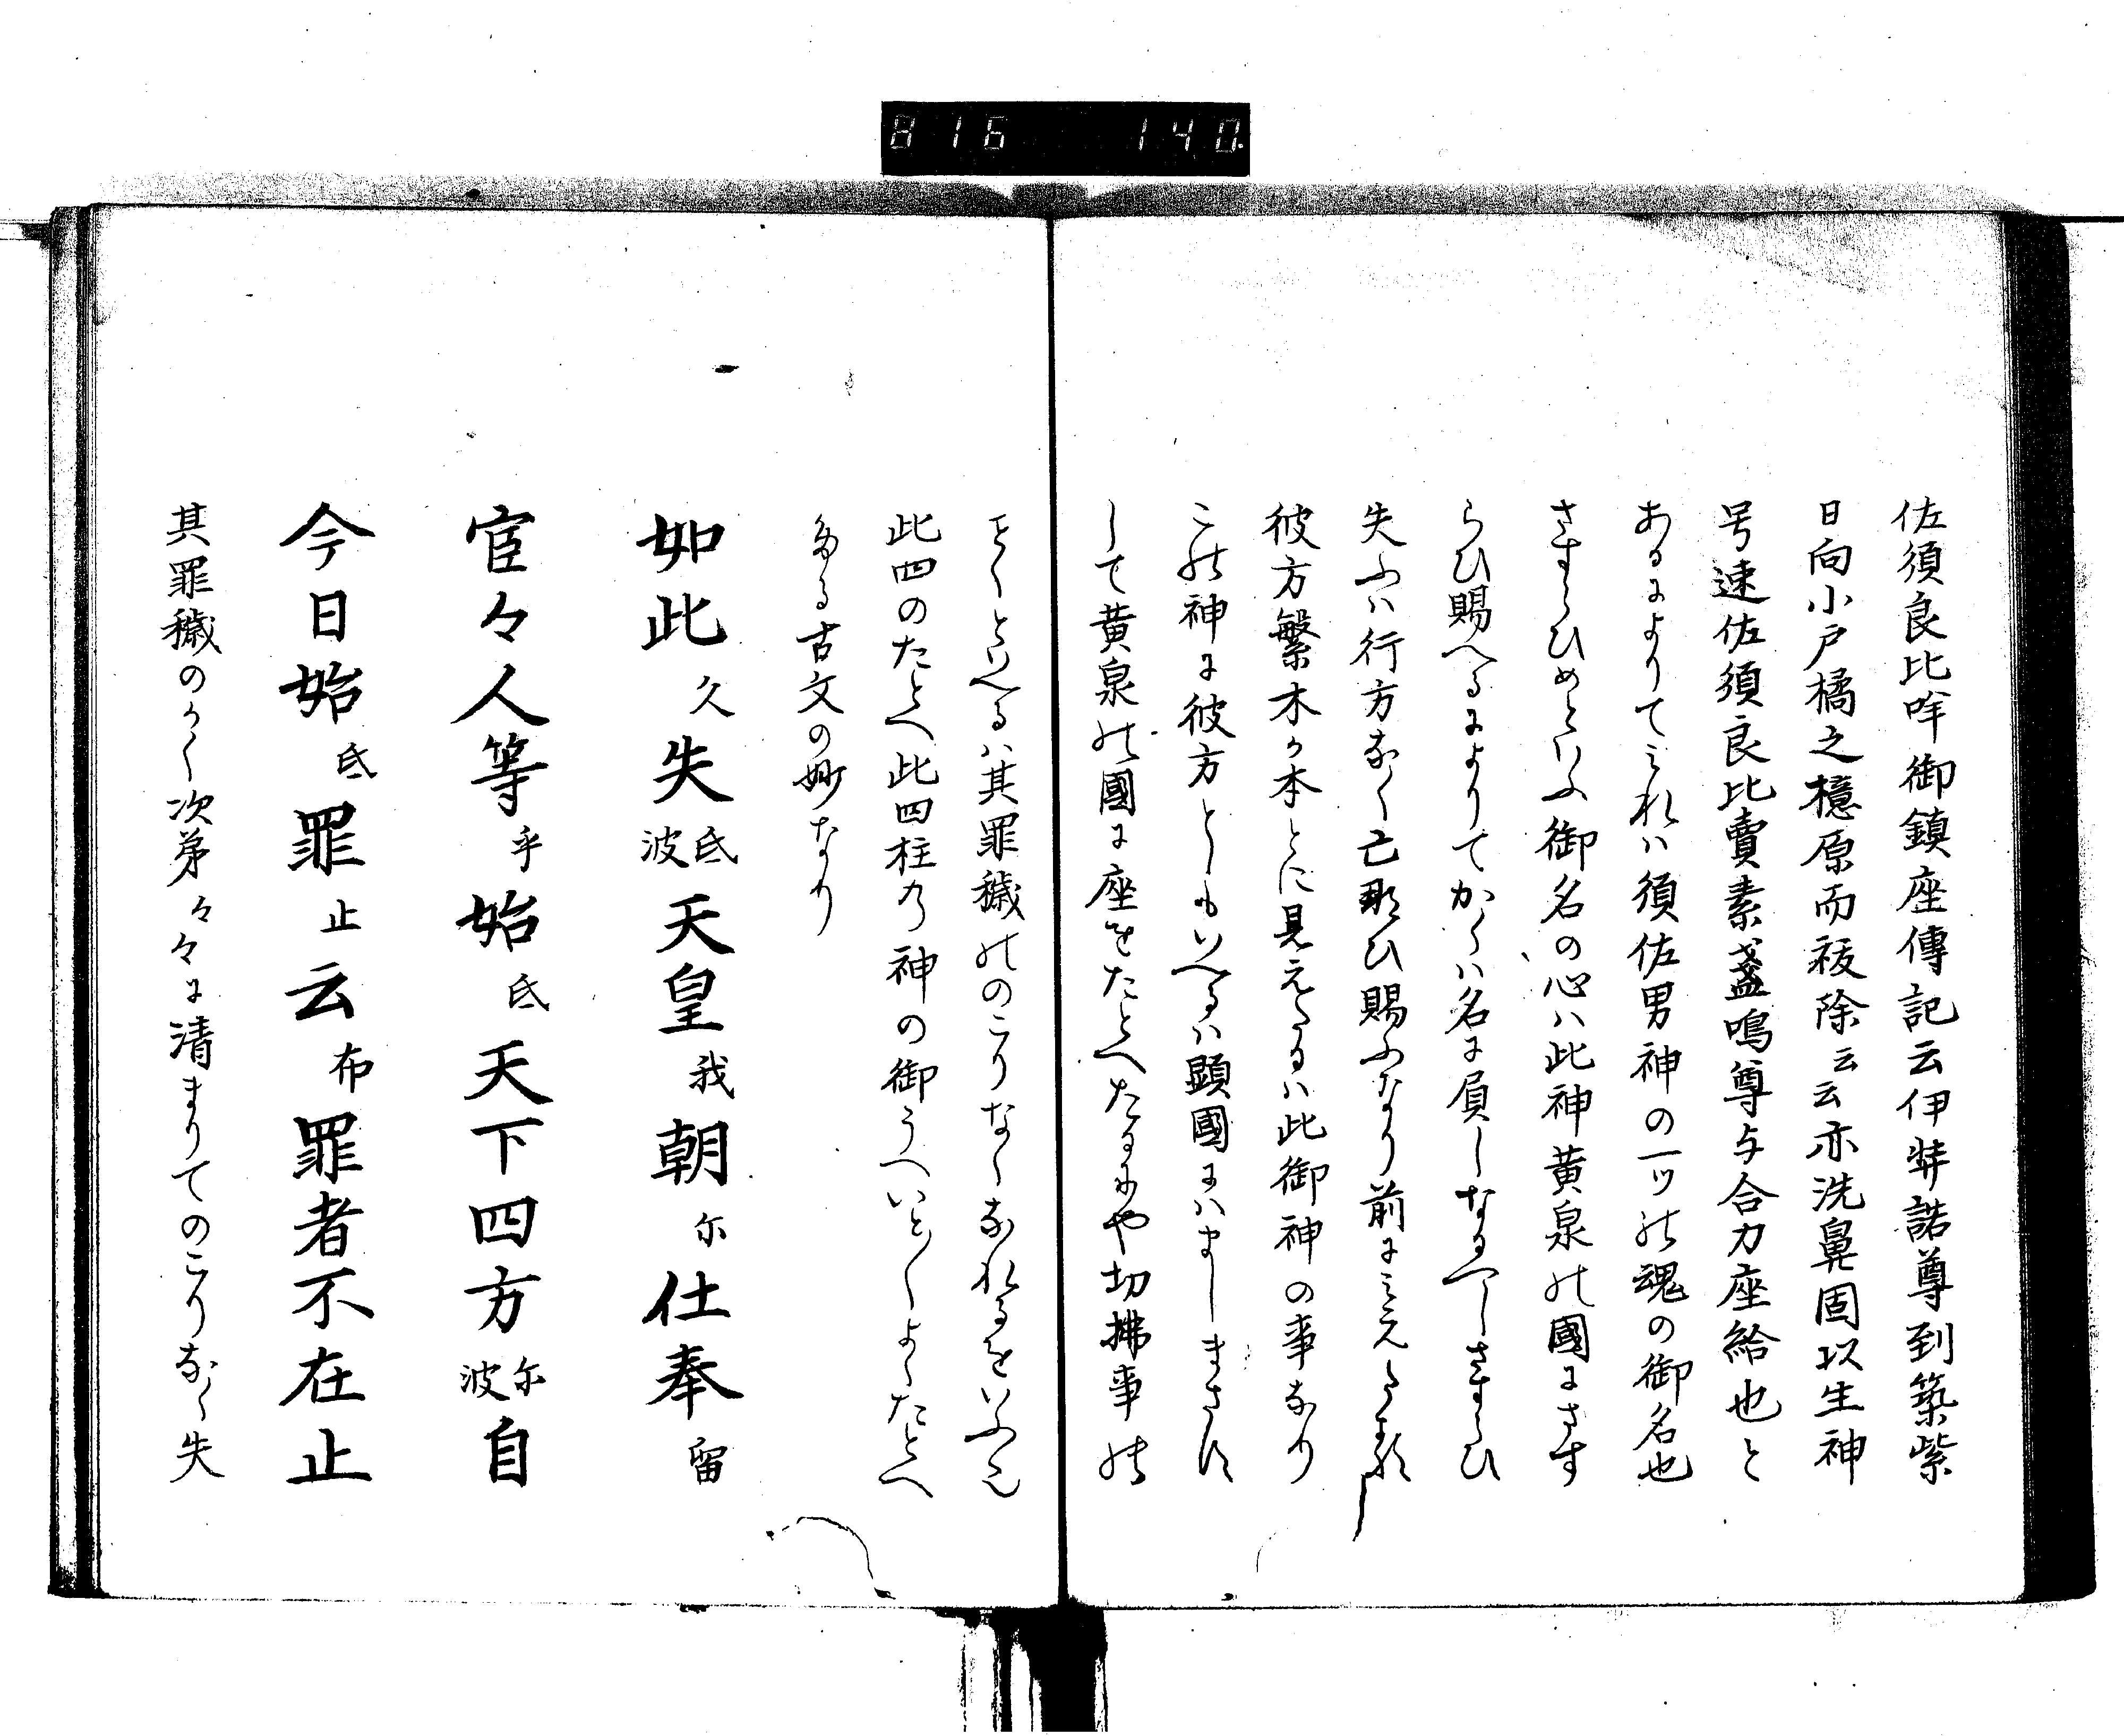 816 140
佐須良比咩御鎮座傳記云伊弉諾尊到築紫
日向小戸橘之檍原而祓除云云亦洗鼻固以生神
号速佐須良比賣素盞鳴尊与合力座給也と
あるによりてみれハ須佐男神の一ツの魂の御名也
さすらひめといふ御名の心ハ此神黄泉の國にさす
らひ賜へるによりてかくハ名に負しなるへしさすらひ
失ふハ行方なく亡ひ賜ふなり前にみえたる
彼方繁木か本とに見えたるハ此御神の事なり
この神に彼方としもいへるハ顕國にハましまさす
して黄泉の國に座をたとへたるにや切拂事の
ことくといへるハ其罪穢ののこりなくなれるをいふ也
此四のたとへ此四柱乃神の御うへいと〱よくたとへ
なる古文の妙なり
如此久失氐波天皇我朝尓仕奉留
官々人等乎始氐天下四方尓波自
今日始氐罪止云布罪者不在止
其罪穢のかく次第々々に清まりてのこりなく失